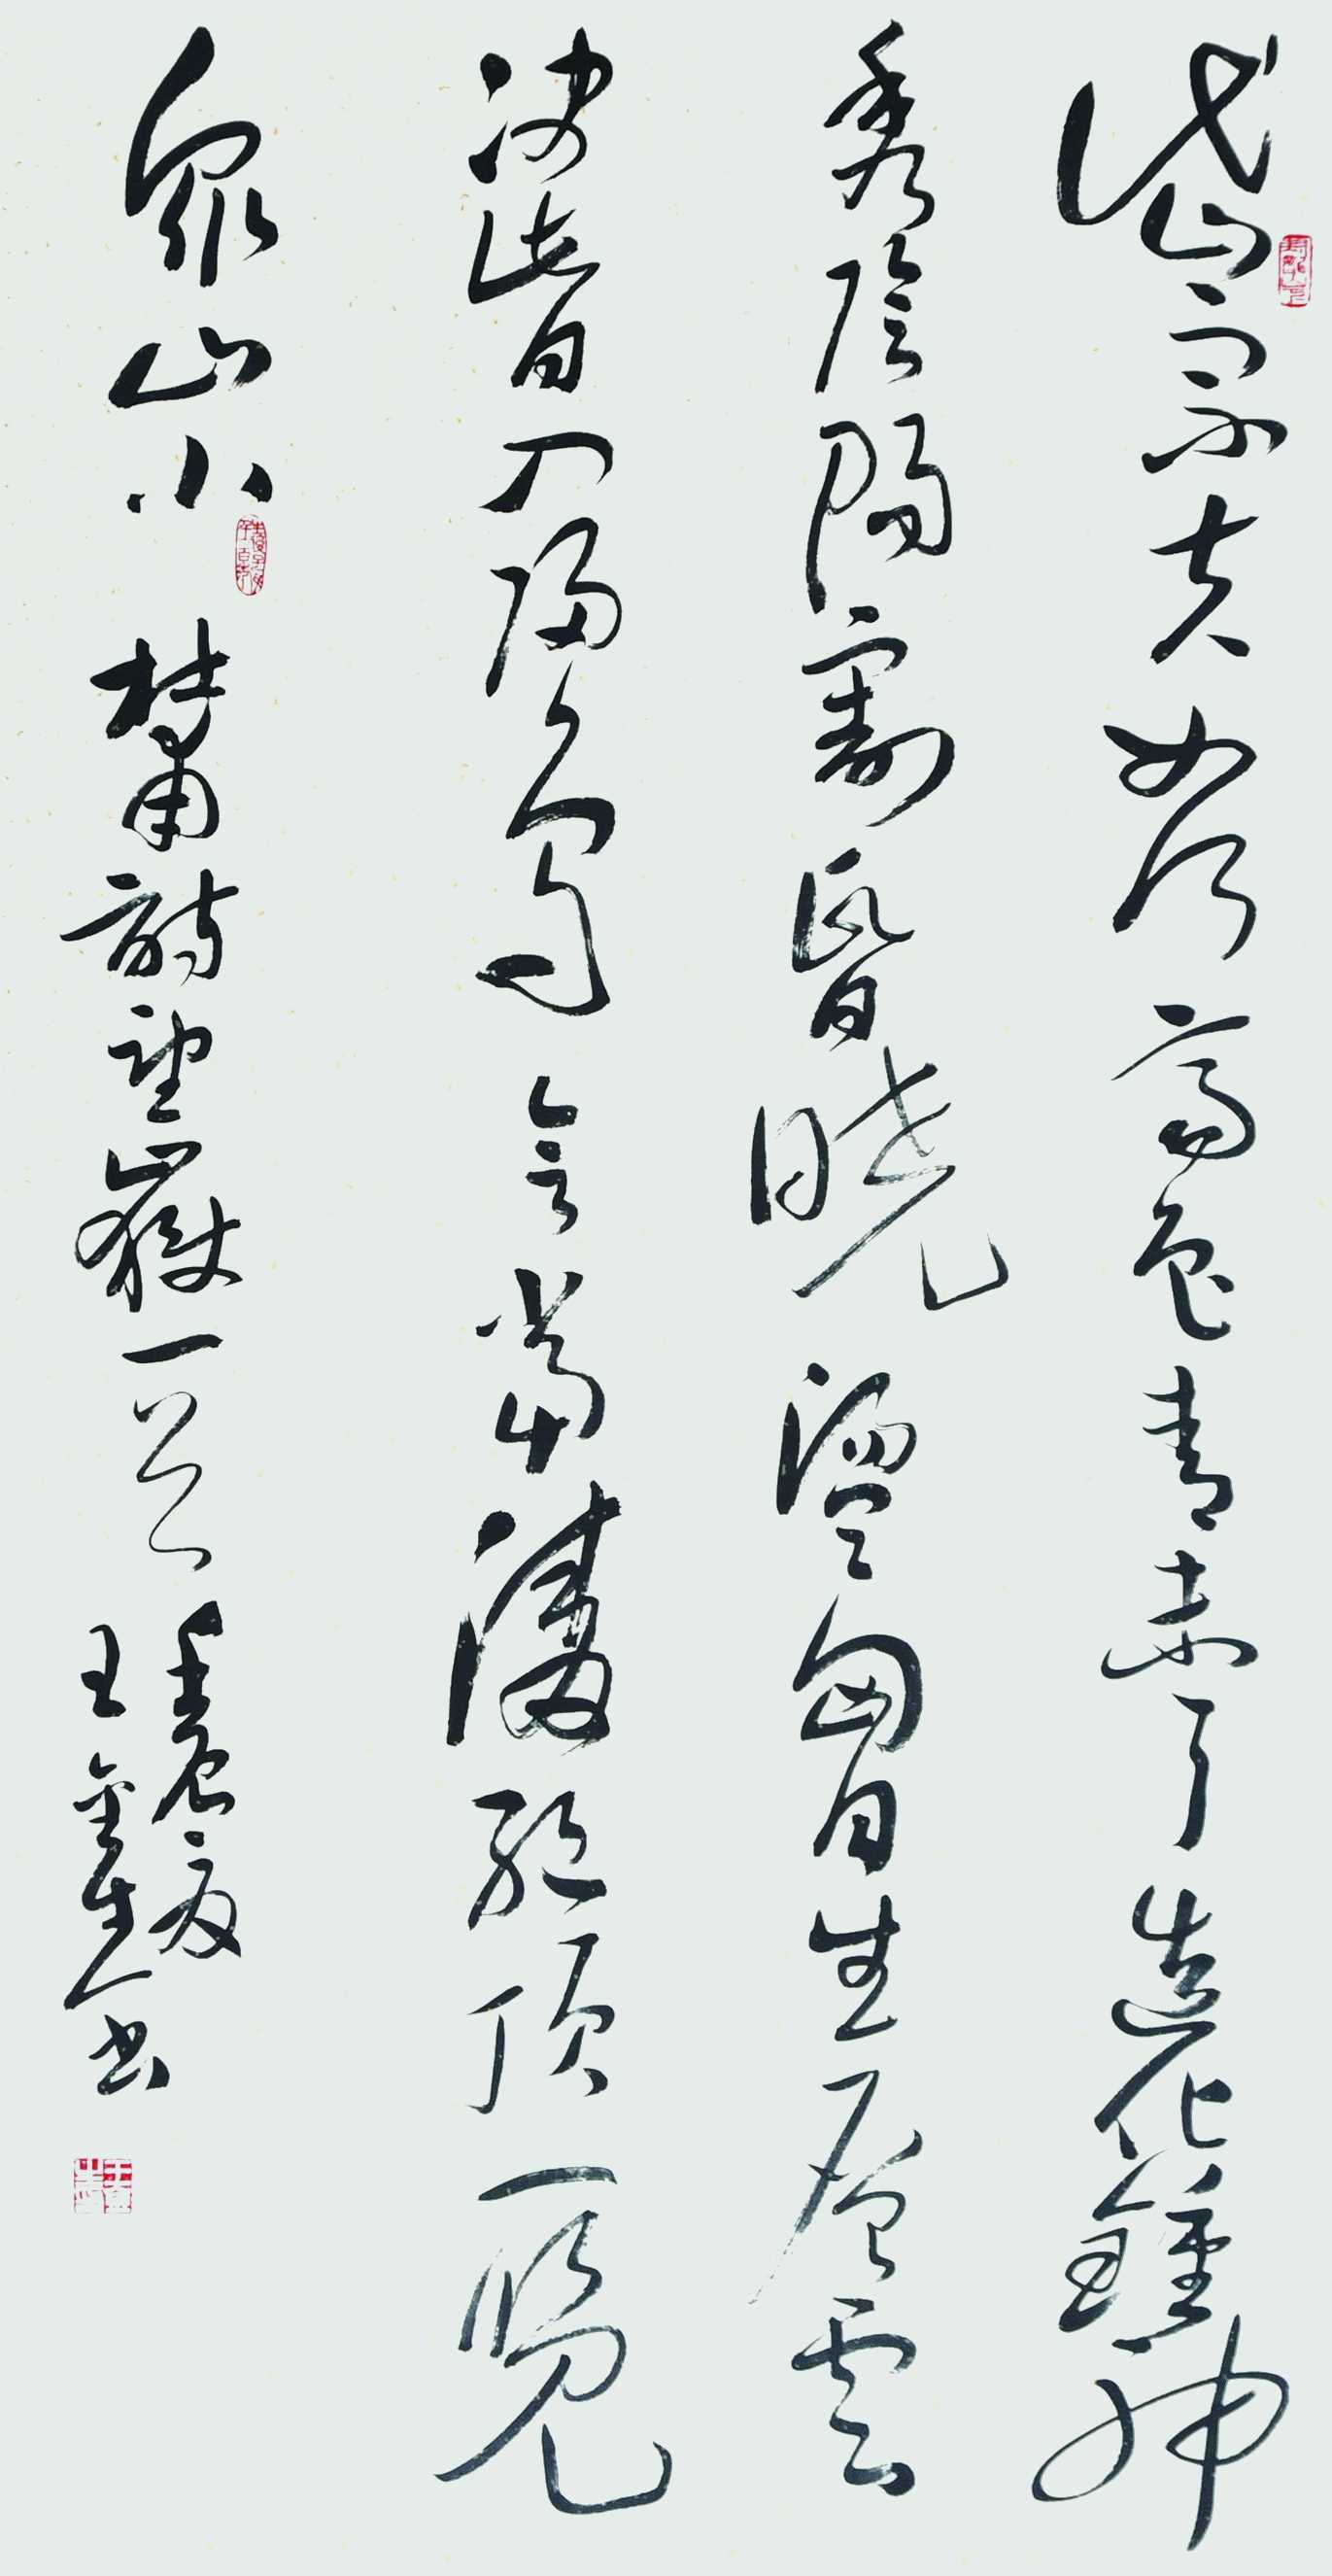 岱宗夫如何齊魯青未了造化鍾神
秀陰陽割昏曉盪胷生層雲
決眥入歸鳥會當凌絕頂一覽
眾山小 杜甫詩望嶽一首